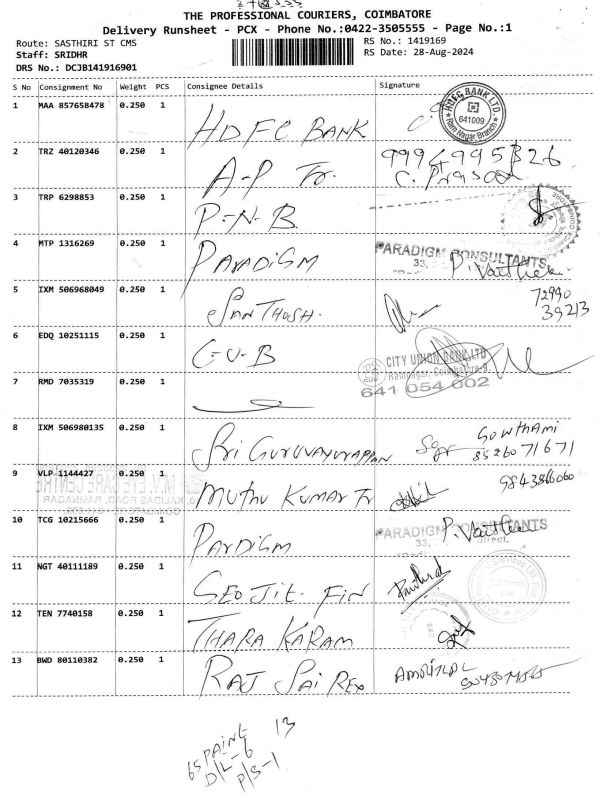 THE PROFESSIONAL COURIERS, COIMBATORE
Delivery Runsheet - PCX - Phone No.:0422-3505555 - Page No.:1
Route: SASTHIRI ST CMS
RS No.: 1419169
Staff: SRIDHR
RS Date: 28-Aug-2024
DRS No.: DCJB141916901
S No Consignment No Weight PCS Consignee Details Signature
1 MAA 857658478 0.250 1 HDFC BANK
HDFC BANK LTD.
641009
Ram Nagar Branch
2 TRZ 40120346 0.250 1 A-P Tr. 9994995326
C. Prasad
3 TRP 6298853 0.250 1 P-N-B.
4 MTP 1316269 0.250 1 PARADIGM PARADIGM CONSULTANTS
33,
5 IXM 506968049 0.250 1 SANTHOSH. 72990
39213
6 EDQ 10251115 0.250 1 C-U-B CITY UNION BANK LTD
Ramnagar, Coimbatore-9.
641 054 002
7 RMD 7035319 0.250 1
8 IXM 506980135 0.250 1 SRI GURUVAYURAPPAN Gowthami
8526071671
9 VLP 1144427 0.250 1 MUTHU KUMAR Tr
10 TCG 10215666 0.250 1 PARDIGM PARADIGM CONSULTANTS
33, Street,
11 NGT 40111189 0.250 1 GEOJIT - FIN
12 TEN 7740158 0.250 1 THARA KARAM
13 BWD 80110382 0.250 1 RAJ SAI REX
13
D/L-6
P/S-1